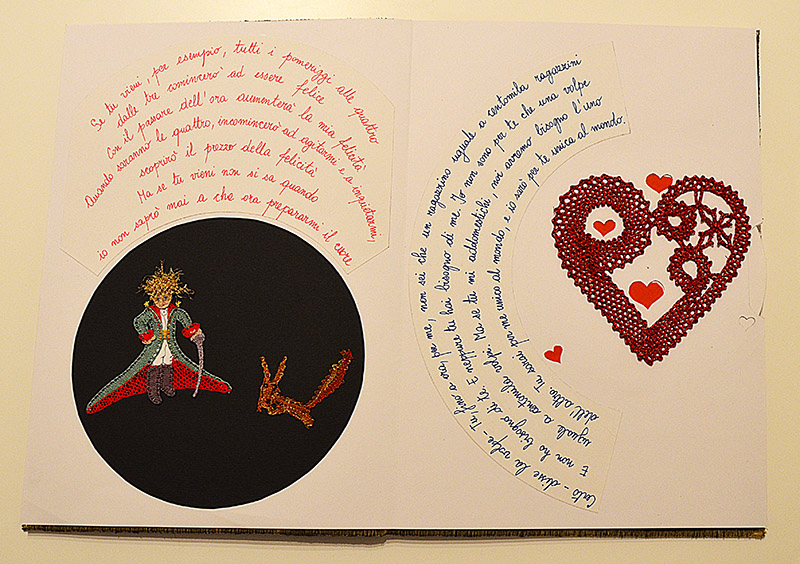 Se tu vieni, per esempio, tutti i pomeriggi alle quattro
dalle tre comincerò ad essere felice
Con il passare dell'ora aumenterà la mia felicità
Quando saranno le quattro, incomincerò ad agitarmi e a inquietarmi,
scoprirò il prezzo della felicità
Ma se tu vieni non si sa quando
io non saprò mai a che ora prepararmi il cuore
Certo - disse la volpe - Tu, fino a ora, per me, non sei che un ragazzino uguale a centomila ragazzini
E non ho bisogno di te. E neppure tu hai bisogno di me. Io non sono per te che una volpe
uguale a centomila volpi. Ma se tu mi addomestichi, noi avremo bisogno l'uno
dell'altro. Tu sarai per me unico al mondo, e io sarò per te unica al mondo.